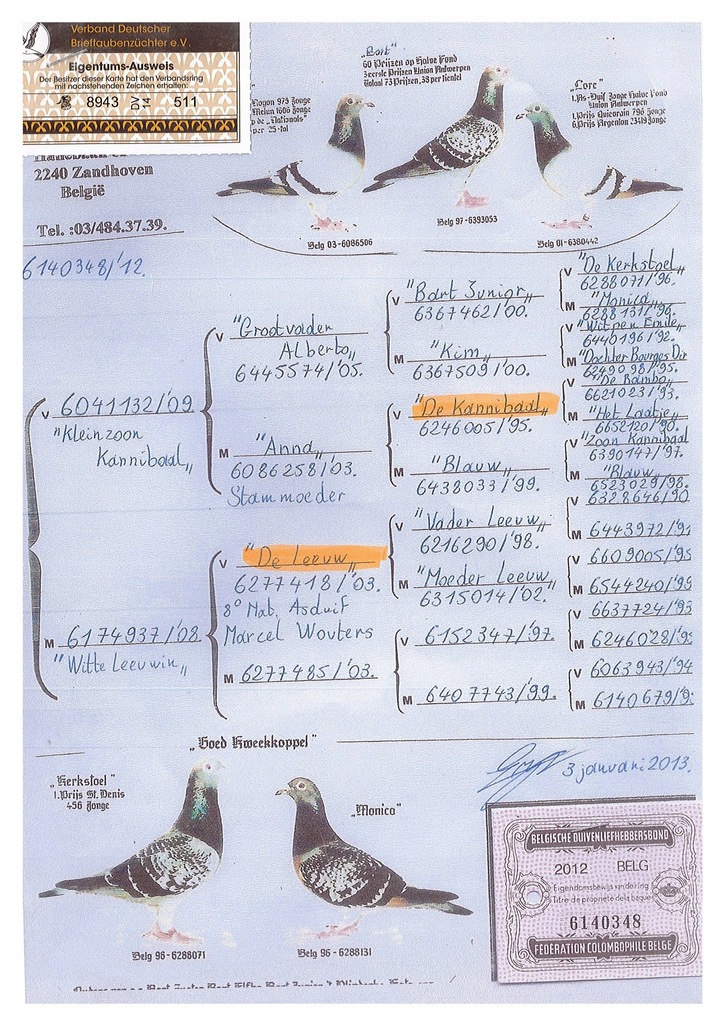 Verband Deutscher
Brieftaubenzüchter e.V.
Eigentums-Ausweis
Der Besitzer dieser Karte hat den Verbandsring
mit nachstehenden Zeichen erhalten:
8943 DV 14 511
2240 Zandhoven
België
Tel. :03/484.37.39.
6140348/'12.
"Bart"
60 Prijzen op Halve Fond
2eerste Prijzen Union Antwerpen
Totaal 73 Prijzen, 38 per tiental
Noyon 973 Jonge
Melun 1606 Jonge
p de „Nationals"
per 25-tal
„Lore"
1.As-Duif Jonge Halve Fond
Union Antwerpen
1.Prijs Quievrain 796 Jonge
6.Prijs Argenton 23419 Jonge
Belg 03-6086506
Belg 97-6393053
Belg 01-6380442
V 6041132/'09.
"Kleinzoon
Kannibaal„
M 6174937/'08.
"Witte Leeuwin„
V "Grootvader
Alberto„
6445574/'05.
M "Anna„
6086258/'03.
Stammoeder
V "De Leeuw„
6277418/'03.
8° Nat. Asduif
Marcel Wouters
M 6277485/'03.
V "Bart Junior„
6367462/'00.
M "Kim„
6367509/'00.
V "De Kannibaal„
6246005/'95.
M "Blauw„
6438033/'99.
V "Vader Leeuw„
6216290/'98.
M "Moeder Leeuw„
6315014/'02.
V 6152347/'97.
M 6407743/'99.
V "De Kerkstoel„
6288071/'96.
M "Monica„
6288131/'96.
V "Witpen Emile„
6440196/'92.
M "Dochter Bourges Dir
6249098/'95.
V "De Rambo„
6621023/'93.
M "Het Laatje„
6652120/'90.
V "Zoon Kannibaal
6390147/'97.
M "Blauw„
6523029/'98.
V 6328646/'90
M 6443972/'9
V 6609005/'9
M 6544240/'9
V 6637724/'93
M 6246028/'9
V 6063943/'94
M 6140679/'9
„Goed Kweekkoppel"
„Kerkstoel"
1.Prijs St. Denis
456 Jonge
„Monica"
3 januari 2013.
Belg 96-6288071
Belg 96-6288131
BELGISCHE DUIVENLIEFHEBBERSBOND
2012 BELG
Eigendomsbewijs van de ring
Titre de propriété de la bague
6140348
FÉDÉRATION COLOMBOPHILE BELGE